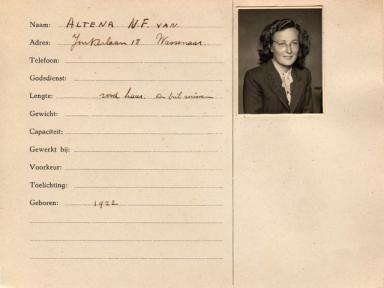 Naam: ALTENA N.F. VAN.
Adres: Jonkerlaan 18 Wassenaar.
Telefoon:
Godsdienst:
Lengte: rood haar. en bril
Gewicht:
Capaciteit:
Gewerkt bij:
Voorkeur:
Toelichting:
Geboren: 1922